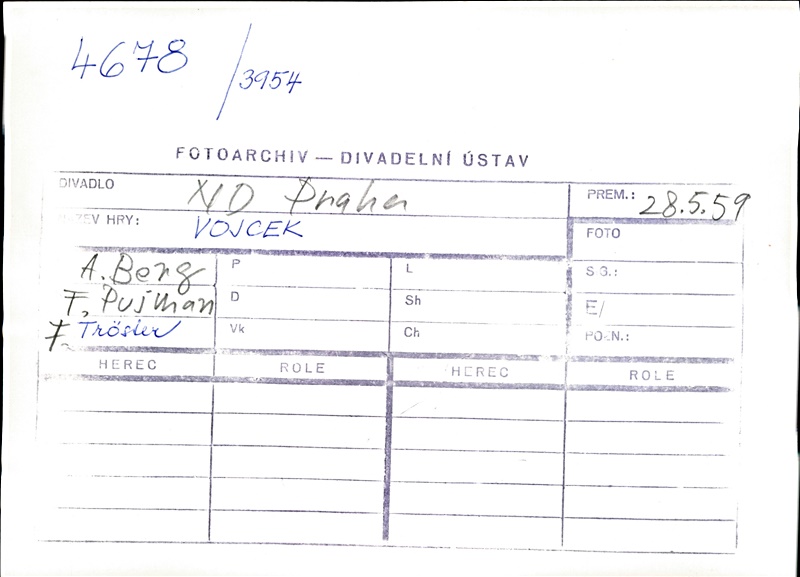 4678 / 3954
FOTOARCHIV — DIVADELNÍ ÚSTAV
DIVADLO ND Praha PREM.: 28.5.59
NÁZEV HRY: VOJCEK FOTO
A. Berg P L SIG.:
F. Pujman D Sh E/
F. Tröster Vk Ch POZN.:
HEREC ROLE HEREC ROLE